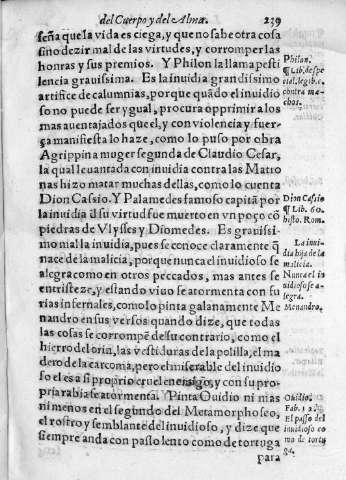 del Cuerpo y del Alma. 239
seña que la vida es ciega, y que no sabe otra cosa
sino dezir mal de las virtudes, y corromper las
honras y sus premios. Y Philon la llama pesti
lencia grauissima. Es la inuidia grandissimo
artifice de calumnias, porque quãdo el inuidio
so no puede ser ygual, procura opprimir a los
mas auentajados que el, y con violencia y fuer-
ça manifiesta lo haze, como lo puso por obra
Agrippina muger segunda de Claudio Cesar,
la qual leuantada con inuidia contra las Matro
nas hizo matar muchas dellas, como lo cuenta
Dion Cassio. Y Palamedes famoso capitã por
la inuidia d̃ su virtud fue muerto en vn poço cõ
piedras de Vlysses y Diomedes. Es grauissi
mo mal la inuidia, pues se conoce claramente q̃
nace de la malicia, porque nunca el inuidioso se
alegra como en otros peccados, mas antes se
entristeze, y estando viuo se atormenta con su
rias infernales, como lo pinta galanamente Me
nandro en sus versos quando dize, que todas
las cosas se corrompẽ de su contrario, como el
hierro del orin, las vestiduras de la polilla, el ma
dero de la carcoma, pero el miserable del inuidio
so el es a si proprio cruel enemigo, y con su pro-
pria rabia se atormenta. Pinta Ouidio ni mas
ni menos en el segundo del Metamorphoseo,
el rostro y semblante del inuidioso, y dize que
siempre anda con passo lento como de tortuga
para
Philon.
¶ Lib. de spe
cial. legib. c.
contra mæ-
chos.
Dion Cassio
¶ Lib. 60.
histo. Rom.
La inui-
dia hija de la
malicia.
Nunca el in
uidioso se a-
legra.
Menandro.
Ouidio.
Fab. 12.
El passo del
inuidioso co
mo de tortu
ga.